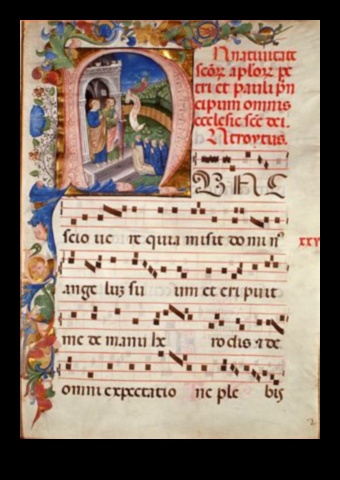 In natiuitate
scōr aplōr pe
tri et pauli pn
cipum omnis
ecclesie scē dei.
Introytus.
N U N C
scio ue re quia misit do mi nˀ
xxv
ange lūz su um et eri puit
me de manu he ro dis ⁊ de
omni expectatio ne ple bis